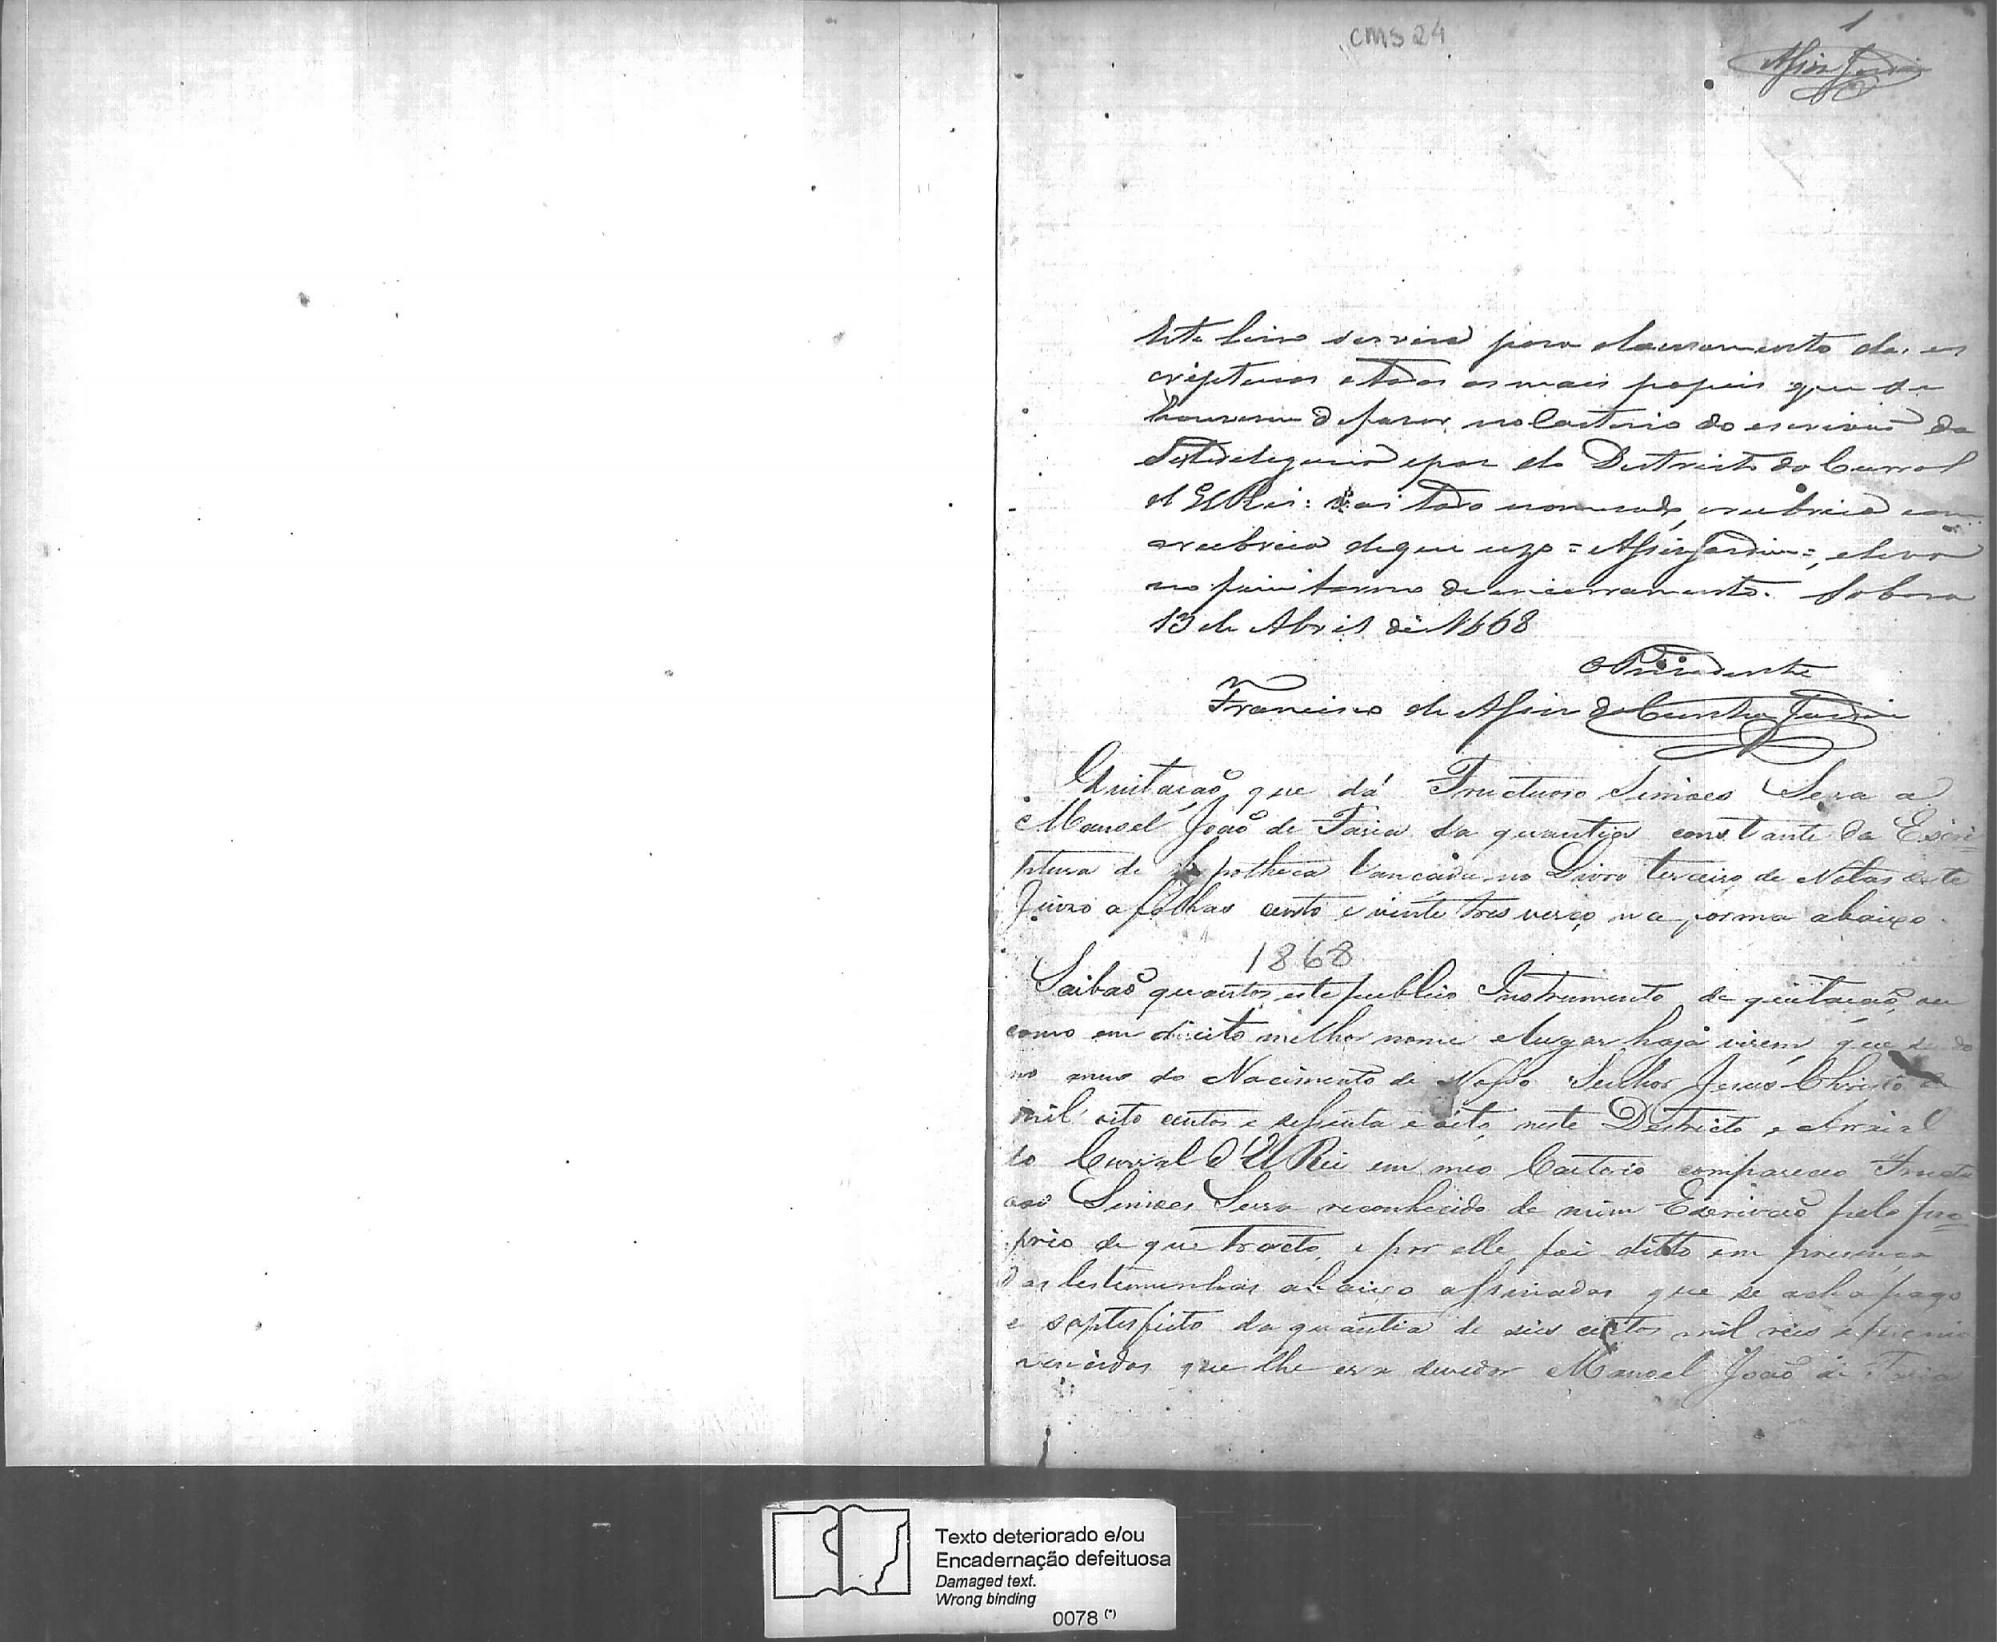 CMS 24
1
Assis Jardim
Este livro servirá para o lançamento das es
cripturas e todos os mais papeis que se
houverem de fazer no Cartorio do escrivão da
Subdelegacia e paz do Districto do Curral
d'El Rei: vai todo numerado, e rubricado com
a rubrica de que uzo = Assis Jardim =, e leva
no fim termo de encerramento. Sabará
13 de Abril de 1868
O Prezidente
Francisco de Assis da Cunha Jardim
Quitação que dá Fructuoso Simoes Serra a
Manoel João de Faria da quantia constante da Escri
ptura de hypotheca lançada no Livro terceiro de Notas deste
Juizo a folhas cento e vinte tres verço, na forma abaixo.
1868
Saibão quantos este publico Instrumento de quitação, ou
como em direito melhor nome e lugar haja virem, que sendo
no anno do Nacimento de Nosso Senhor Jesus Christo de
mil oito centos e sessenta e oito, neste Districto e Arraial
do Curral d'El Rei em meo Cartorio compareceo Fructu
oso Simoes Serra reconhecido de mim Escrivão pelo pro
prio de que tracto, e por elle foi ditto em presença
das testemunhas abaixo assinadas que se acha pago
e saptisfeito da quantia de seis centos mil reis e premio
vencidos que lhe era devedor Manoel João de Faria
Texto deteriorado e/ou
Encadernação defeituosa
Damaged text.
Wrong binding
0078 (*)